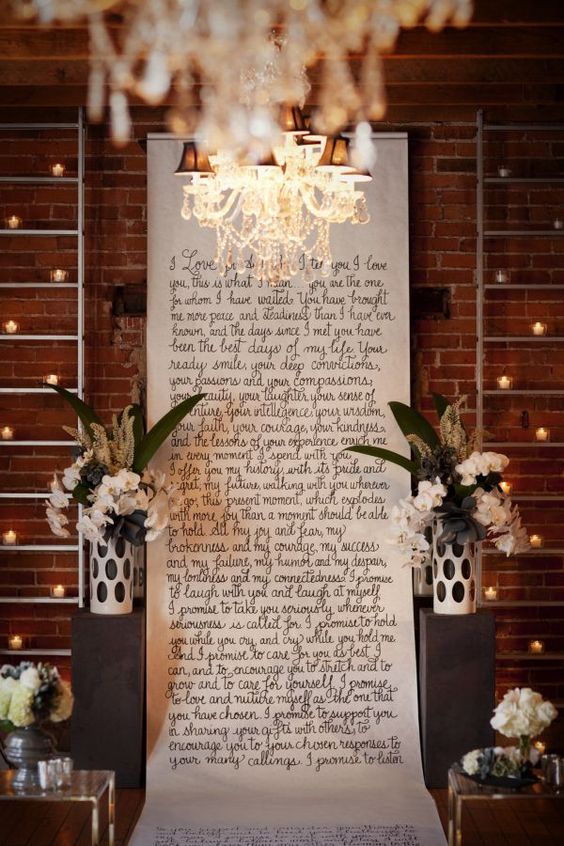 I Love you I love
you, this is what I mean you are the one
for whom I have waited. You have brought
me more peace and steadiness than I have ever
known, and the days since I met you have
been the best days of my life. Your
ready smile, your deep convictions,
your passions and your compassions,
your beauty, your laughter, your sense of
your intelligence, your wisdom,
your faith, your courage, your kindness,
and the lessons of your experience enrich me
in every moment I spend with you.
I offer you my history, with its pride and
my future, walking with you wherever
go, this present moment, which explodes
with more joy than a moment should be able
to hold. All my joy and fear, my
brokenness and my courage, my success
and my failure, my humor and my despair,
my loneliness and my connectedness. I promise
to laugh with you and laugh at myself
I promise to take you seriously, whenever
seriousness is called for. I promise to hold
you while you cry, and cry while you hold me.
And I promise to care for you as best I
can, and to encourage you to stretch and to
grow and to care for yourself. I promise
to love and nurture myself as the one that
you have chosen. I promise to support you
in sharing your gifts with others, to
encourage you to your chosen responses to
your many callings. I promise to listen